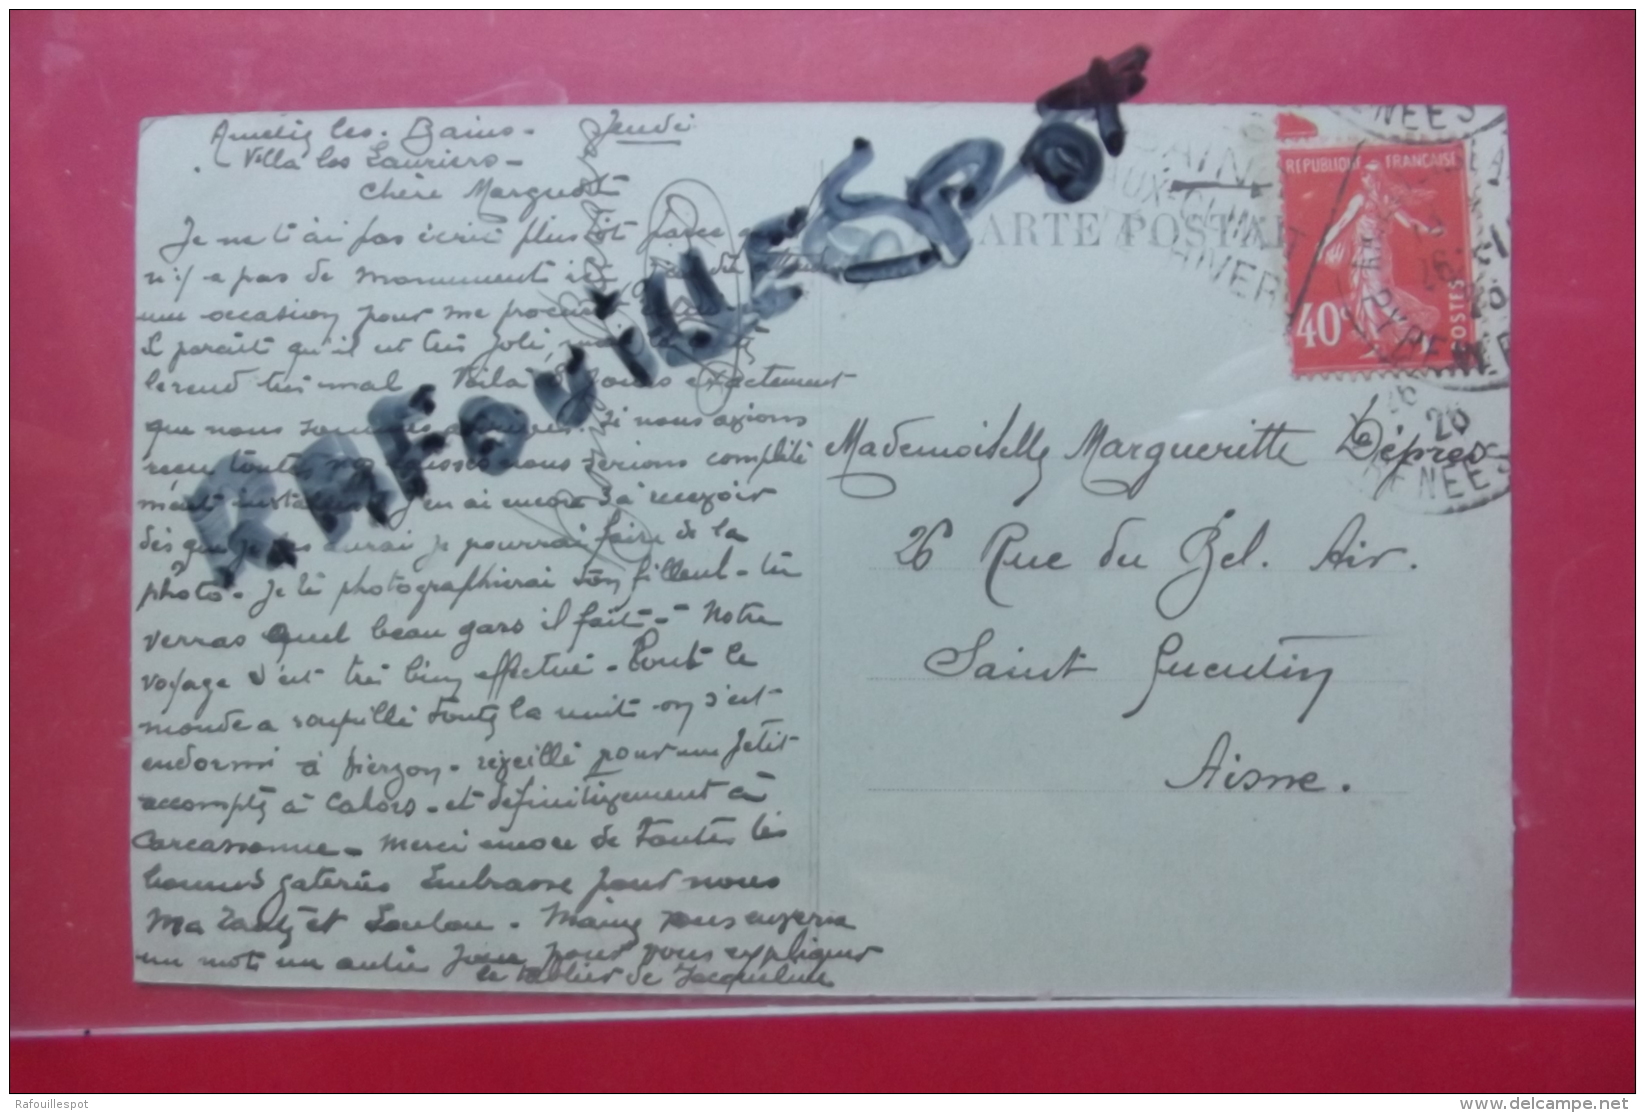 Amélie les-Bains - Jeudi
Villa les Lauriers -
Chère Marguerite
Je ne t'ai pas écrit plus tôt parce
n'y a pas de monument
une occasion pour me procurer
Il parait qu'il est très joli,
le rend très mal. Voilà jours exactement
que nous sommes arrivés. Si nous avions
reçu toutes nos caisses nous serions complète
ment installés. J'en ai encore 3 à recevoir
dès que je les aurai je pourrai faire de la
photo. Je te photographierai ton filleul - tu
verras quel beau gars il fait - Notre
voyage s'est très bien effectué - Tout le
monde a roupillé toute la nuit on s'est
endormi à Vierzon - réveillé pour un petit
acompte à Cahors - et définitivement à
Carcassonne - Merci encore de toutes les
bonnes gateries Embrasse pour nous
Ma Tante et Loulou - vous enverra
un mot un autre jour pour vous expliquer
le tablier de Jacqueline
RAFOUILLESPOT
CARTE POSTALE
REPUBLIQUE FRANÇAISE
40c
POSTES
BAINS
EAUX-CLIMAT
HIVER
PYRENEES
26
Mademoiselle Marguerite Déprez
26 Rue du Bel. Air.
Saint Quentin
Aisne.
Rafouillespot